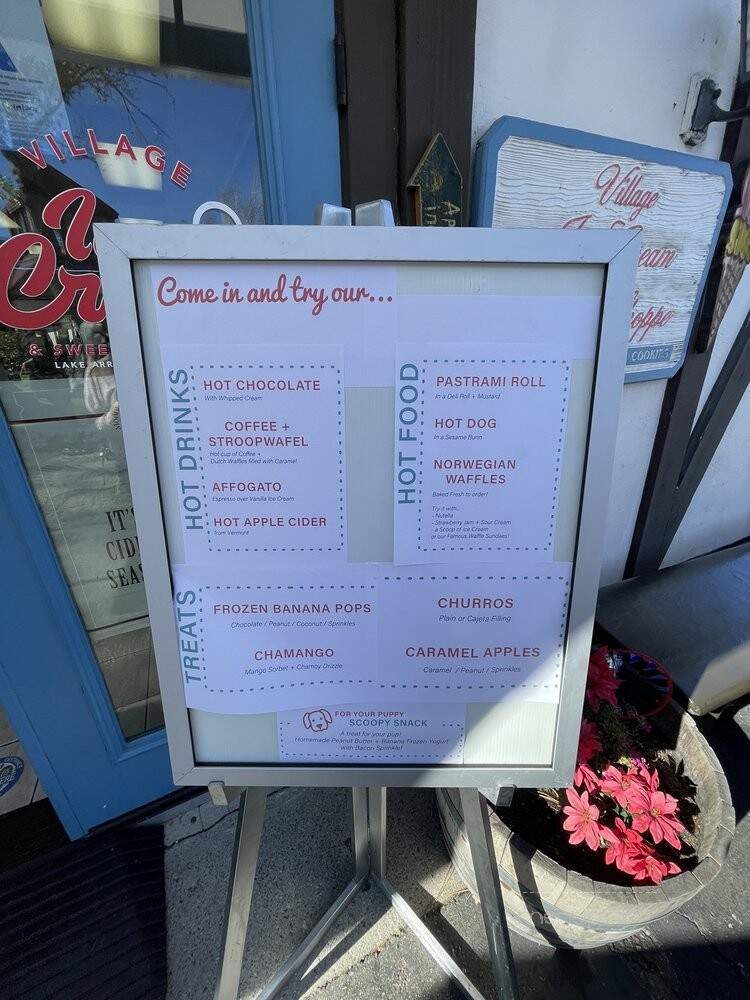 VILLAGE
& SWEE
LAKE ARR
IT'S
CID
SEAS
Village
Cream
oppe
COOKIES
Come in and try our...
HOT DRINKS
HOT CHOCOLATE
With Whipped Cream
COFFEE +
STROOPWAFEL
Hot cup of Coffee +
Dutch Waffles filled with Caramel
AFFOGATO
Espresso over Vanilla Ice Cream
HOT APPLE CIDER
from Vermont
HOT FOOD
PASTRAMI ROLL
In a Deli Roll + Mustard
HOT DOG
In a Sesame Bunn
NORWEGIAN
WAFFLES
Baked Fresh to order!
Try it with...
- Nutella
- Strawberry Jam + Sour Cream
- a Scoop of Ice Cream
or our Famous Waffle Sundaes!
TREATS
FROZEN BANANA POPS
Chocolate / Peanut / Coconut / Sprinkles
CHAMANGO
Mango Sorbet + Chamoy Drizzle
CHURROS
Plain or Cajeta Filling
CARAMEL APPLES
Caramel / Peanut / Sprinkles
FOR YOUR PUPPY
SCOOPY SNACK
A treat for your pup!
Homemade Peanut Butter + Banana Frozen Yogurt
with Bacon Sprinkle!